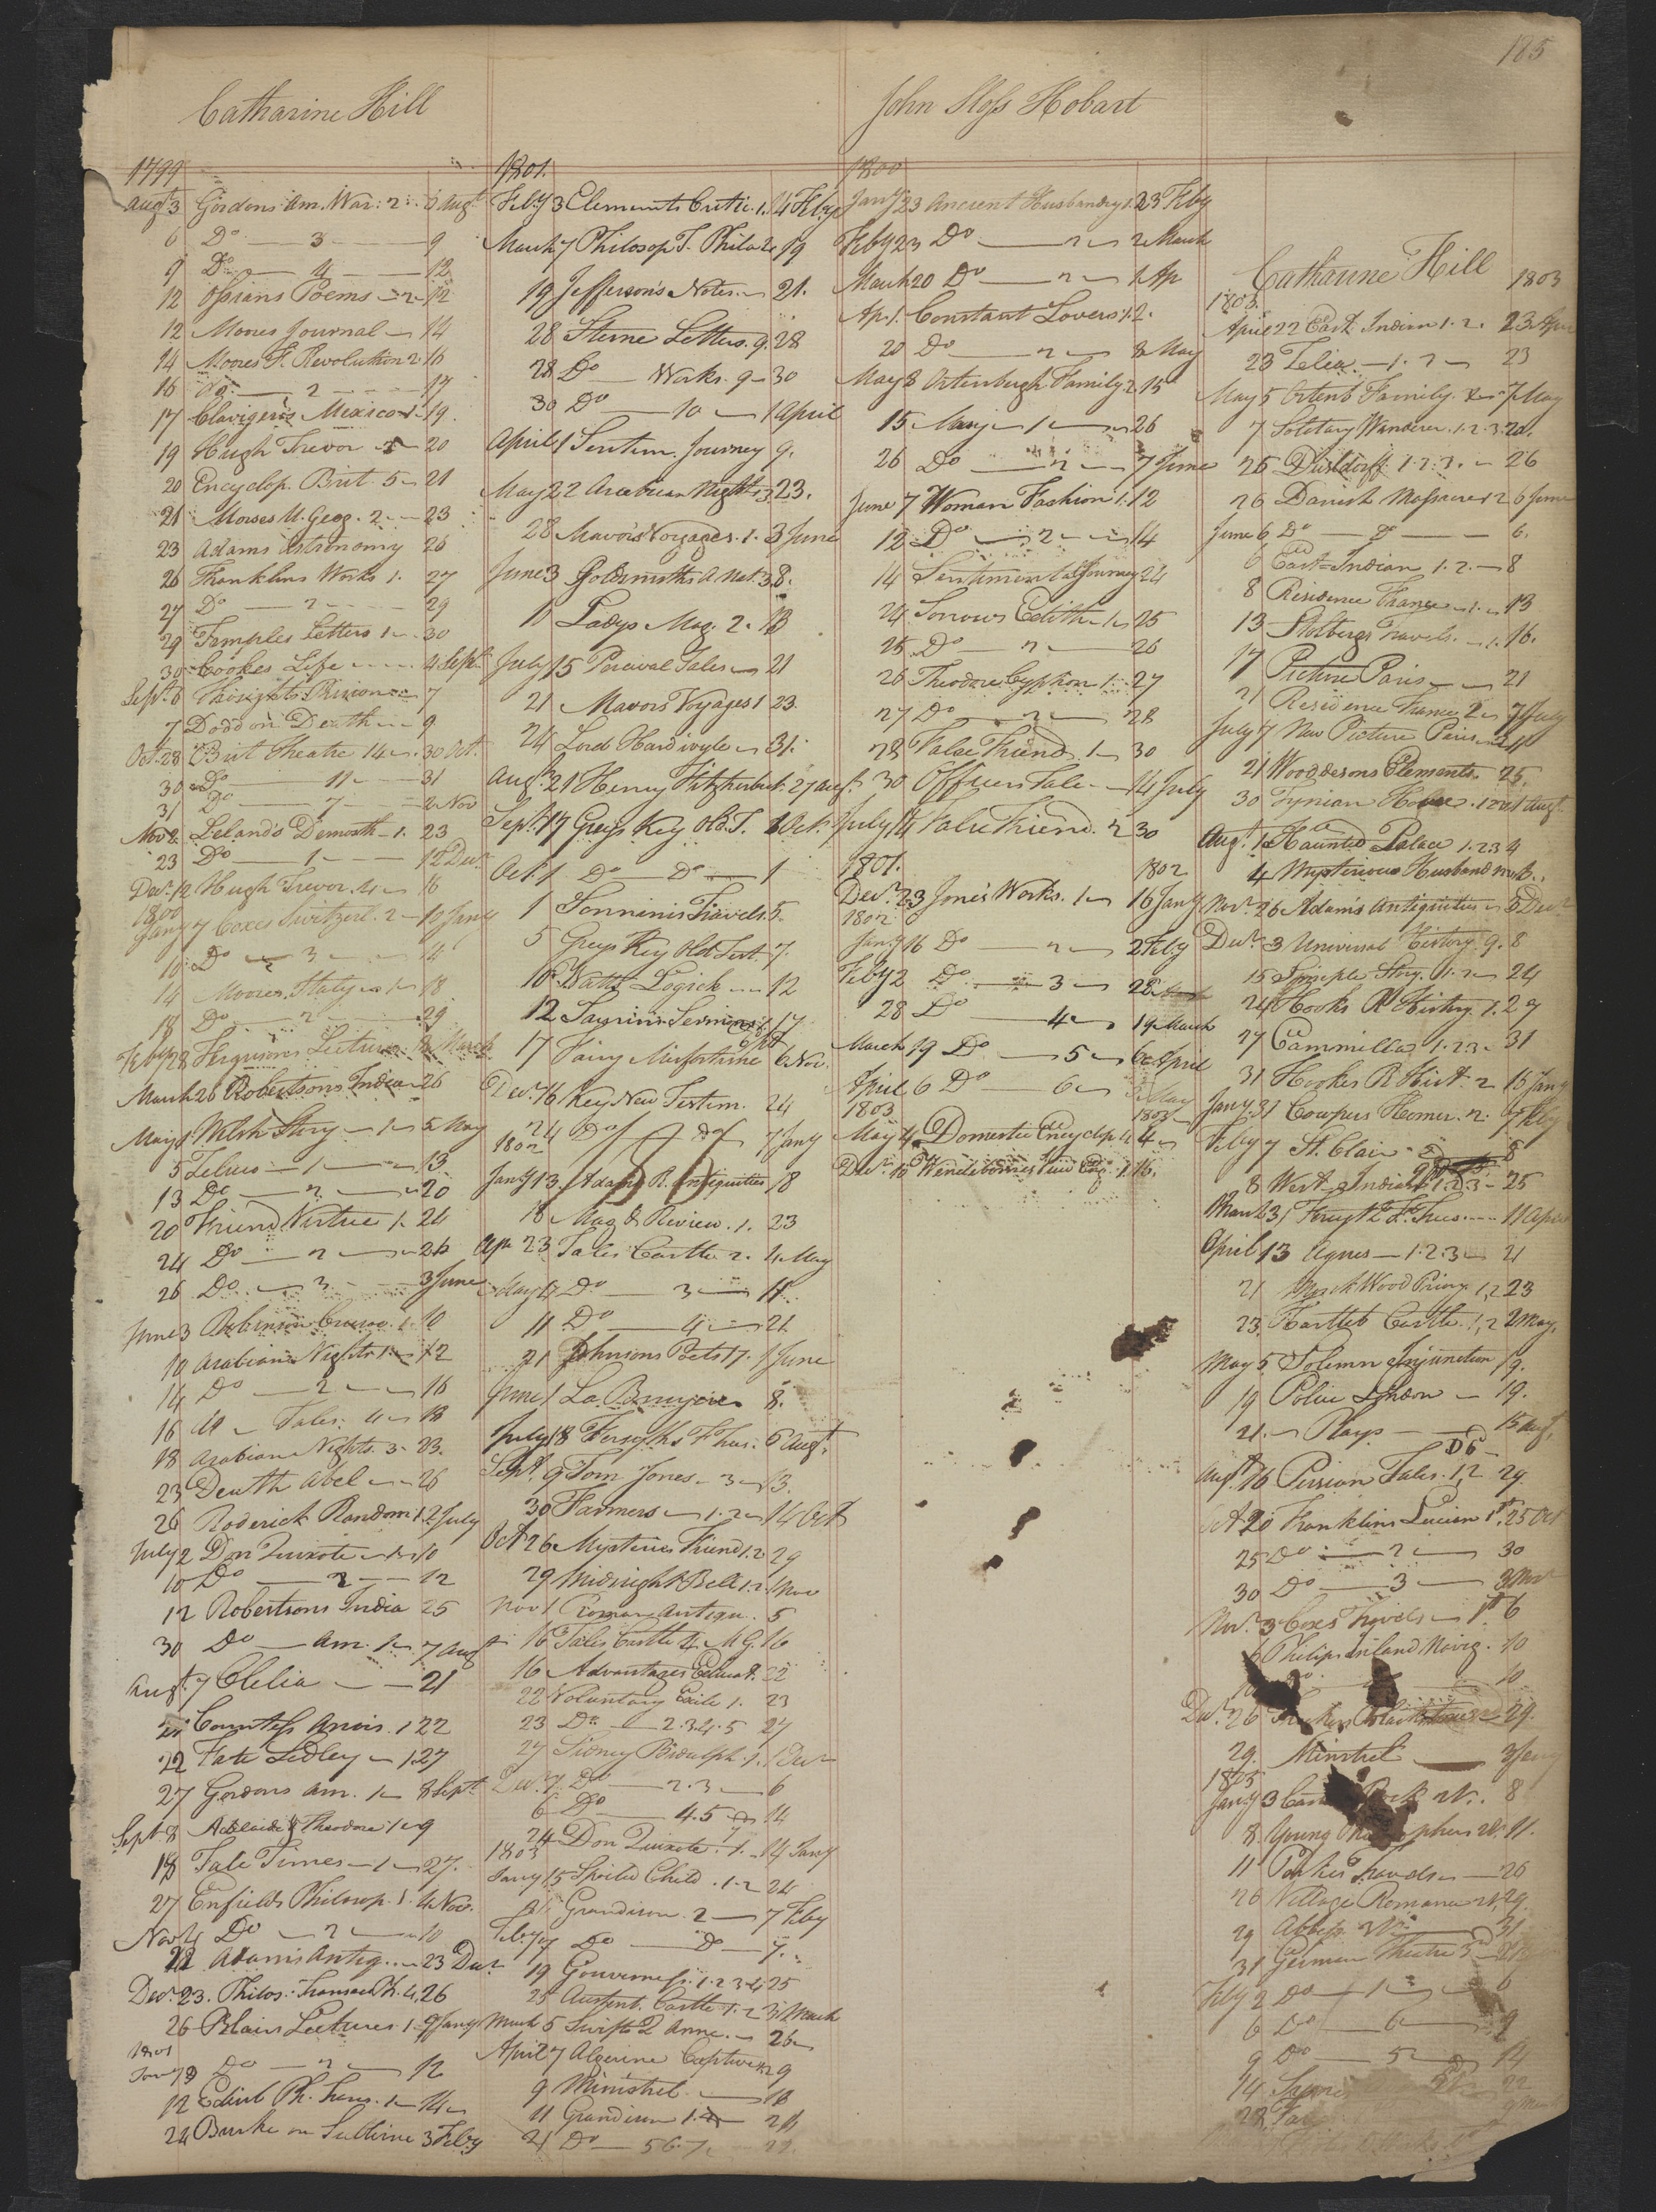 185
Catharine Hill
1799
Augt 3 Gordons Am. War. 2 6 Augt
6 Do 3 9
9 Do 4 12
12 Ossians Poems 2 12
12 Moores Journal 14
14 Moores F. Revolution 2 16
16 Do 2 17
17 Clavigero's Mexico 1 19
19 Hugh Trevor 3 20
20 Encyclop. Brit. 5 21
21 Morses U. Geog. 2 23
23 Adams Astronomy 26
26 Franklins Works 1. 27
27 Do 2 29
29 Temples Letters 1 30
30 Cookes Life 4 Sept
Sept 6 7
7 Dodd on Death 9
Oct. 28 Brit Theatre 14 30 Oct.
30 Do 11 31
31 Do 7 2 Nov
Nov 2 Leland's Demosth 1. 23
23 Do 1 12 Decr
Decr 12 Hugh Trevor. 4 16
1800
Jany 7 Coxes Switzerl. 2 10 Jany
10 Do 3 14
14 Moores Italy 1 18
18 Do 2 29
Feby 28 Fergusons Lectures March
March 26 Robertsons India 26
May 1 Welsh Story 1 5 May
5 Zeluco 1 13
13 Do 2 20
20 Friend Virtue 1. 24
24 Do 2 26
26 Do 3 3 June
June 3 Robinson Crusoe. 1. 10
10 Arabian Nights 1 12
14 Do 2 16
16 Do Tales. 4 18
18 Arabian Nights. 3 23.
23 Death Abel 26
26 Roderick Random 1.2 July
July 2 Don Quixote 1 10
10 Do 2 12
12 Robertsons India 25
30 Do Am. 1 7 Aug
Augt 7 Clelia 21
21 Countess Anvis. 1 22
22 Fate Sedley 1.27
27 Gordons Am. 1 8 Sept
Sept 8 Adelaide & Theodore 1 9
18 Tale Times 1 27.
27 Enfields Philosop. 1. 4 Nov.
Nov 4 Do 2 10
22 Adams Antiq. 23 Decr
Decr 23. Philos. Transact. Ph. 4. 26
26 Blairs Lectures 1 9 Jany
1801
Jany 9 Do 2 12
12 Edinb Ph. Trans. 1 14
24 Burke on Sublime 3 Feby
1801.
Feby 3 Elements Critic. 1. 4 Feby
March 7 Philosop. T. Phila 2 19
19 Jefferson's Notes 21.
28 Sterne Letters. 9. 28
28 Do Works. 9 30
30 Do 10 1 April
April 1 Sentim. Journey 9.
May 22 Arabian Nights 3 23.
28 Mavor's Voyages. 1. 3 June
June 3 Goldsmiths A. Nat. 3 8.
10 Ladys Mag. 2. 13
July 15 Percival Tales 21
21 Mavors Voyages 1 23.
24 Lord Hardivyle 31.
Augt 21 Henry Fitzherbert. 27 Augt
Sept 17 Greys Key Old. T. 1 Oct.
Oct. 1 Do Do 1
1 Sonninis Travels. 5.
5 Greys Key Old Test. 7.
10 Watts Logick 12
12 Saurins Sermons 17
17 Fairy Misfortune 6 Nov.
Decr 16 Key New Testim. 24
24 Do Do 7 Jany
1802
Jany 13 Adams R. Antiquities 18
18 Mag & Review. 1. 23
Apr 23 Tales Castle 2. 4 May
May 4 Do 3 11
11 Do 4 21
21 Johnsons Poets 17. 1 June
June 1 La Bruyere 8.
July 18 Forsyths F Trees. 6 Augt
Sept. 9 Tom Jones. 3 13.
30 Farmers 1.2 14 Oct
Oct 26 Mysterious Friend 1.2 29
29 Midnight Bell 1.2. 1 Nov
Nov 1 Roman Antiqu. 5
16 Tales Castle 4. M G. 16
16 Advantages Educat. 22
22 Voluntary Exile 1. 23
23 Do 2.3.4.5 27
27 Sidney Bidulph. 1. 1 Decr
Decr 1 Do 2.3 6
6 Do 4.5 14
24 Don Quixote. 1. 14 Jany
1803
Jany 15 Spoiled Child. 1.2 24
Grandison. 2 7 Feby
Feby 7 Do Do 7.
19 Governess. 1.2.3.4 25
25 Austenb. Castle 1.2 3 March
March 5 Swifts Q Anne. 26
April 7 Algerine Captive 1.2 9
9 Minstrel. 10
11 Grandison 1.4 21
21 Do 5 6. 7. 22.
John Sloss Hobart
1800
Jany 23 Ancient Husbandry 1. 23 Feby
Feby 23 Do 2 2 March
March 20 Do 2 1 Ap
Ap. 1. Constant Lovers 1.2.
20 Do 2 8 May
May 8 Ortenburgh Family 2. 15
15 Mary 1 26
26 Do 2 7 June
June 7 Woman Fashion 1. 12
12 Do 2 14
14 Sentimental Journey 24
24 Sorrows Edith 1 25
25 Do 2 26
26 Theodore Cyphon 1. 27
27 Do 2 28
28 False Friend. 1 30
30 Officers Tale 14 July
July 14 False Friend. 2 30
1801. 1802
Decr 23 Jones Works. 1 16 Jany
1802
Jany 16 Do 2 2 Feby
Feby 2 Do 3 28
28 Do 4 19 March
March 19 Do 5 6 April
April 6 Do 6 May
1803 1803
May 4 Domestic Encyclop. 1. 4
Decr 10 16.
Catharine Hill 1803
1803.
April 22 East Indian 1.2. 23 Apr
23 Zelia 1.2 23
May 5 Ortenb Family. 7 May
7 Solitary Wanderer. 1.2.3. 20.
25 Dusseldorff. 1.2.3. 26
26 Danish Massacre 1.2 6 June
June 6 Do Do 6.
6 East Indian 1.2. 8
8 Residence France 1. 13
13 Stolbergs Travels. 1. 16.
17 Picture Paris 21
21 Residence France 2 7 July
July 7 New Picture Paris 11
21 Wooddesons Elements. 25.
30 Tynian 1 Augt
Augt. 1 Haunted Palace 1.2.3 4
4 Mysterious Husband
Novr 26 Adam's Antiquities 3 Decr
Decr 3 Universal History. 9. 8
15 Simple Story. 1.2 24
24 Hooks R History. 1. 27
27 Cammilla 1.2.3. 31
31 Hookes R Hist. 2 15 Jany
Jany. 31 Cowpers Homer. 2. 7 Feby
Feby 7 St. Clair 8
8 West Indian 1.2.3 25
March 31 Forsyth F. Trees. 11 April
April 13 Agnes 1.2.3 21
21 Monk Wood Priory. 1.2 23
23. Hartleb Castle. 1.2 2 May.
May 5 Solemn Injunction 19.
19 Police London 19.
21. Plays 15 Augt.
Augt 16 Persian Tales. 1.2 29
Oct 20 Franklins Lucian 1st. 25 Oct
25 Do 2 30
30 Do 3 3 Nov
Novr 3 Coxes Travels 1st 6
6 Philips Inland Navig. 10
10.
Decr 26 29.
29. Minstrel 3 Jany
1805
Jany 3 8
8. Young 11.
11 Parkes Travels 26
26 Village Romance 29.
29 Abbess. 31
31 German Theatre 3
Feby 2 Do 1 6
6 Do 6 9
9 Do 5 14
14 22
22